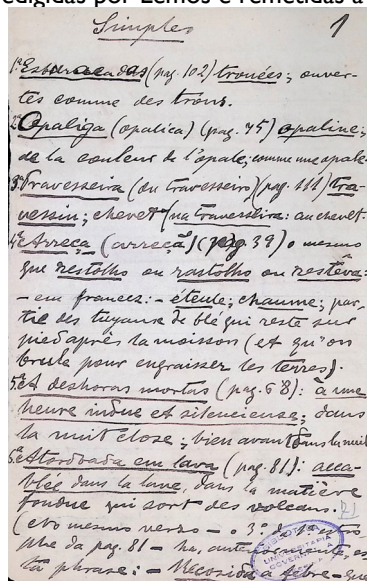 edigidas por Lemos e remetidas a
Simples 1
1ª Esburacadas (pag. 102) trouées; ouver-
tes comme des trous.
2ª Opaliga (opalica) (pag. 75) opaline;
de la couleur de l'opale; comme une opale.
3ª Travesseira (ou travesseiro) (pag. 111) tra-
versin; chevet (na travesseira: au chevet.
4ª Arreçã (arreçã) (pag. 39) o mesmo
que restolho ou rastolho ou resteva:
- em francez: - éteule; chaume; par-
tie des tuyaux de blé qui reste sur
pied après la moisson (et qu'on
brule pour engraisser les terres).
5ª A deshoras mortas (pag. 68): à une
heure indue et silencieuse; dans
la nuit close; bien avant dans la nuit
6ª Atordoada em lava (pag. 81): acca-
blée dans la lave, dans la matière
fondue qui sort des volcans.
(e no mesmo verso - o 3º da
phe da pag. 81 - ha, es
ta phrase: - a febre - que